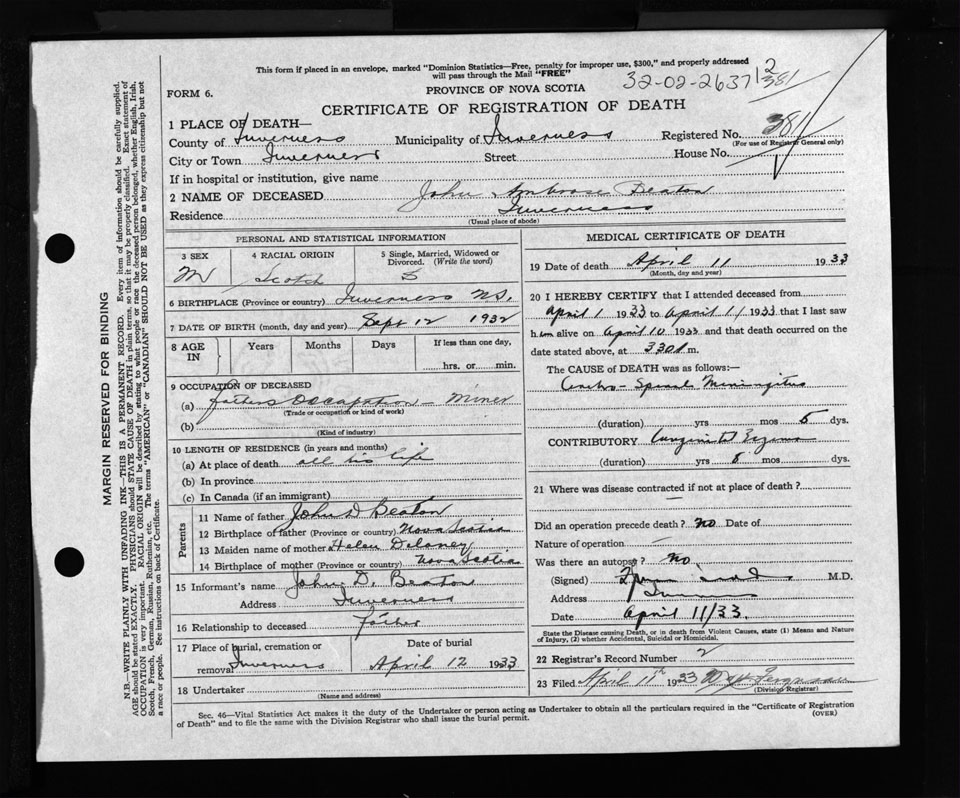 This form if placed in an envelope, marked "Dominion Statistics—Free, penalty for improper use, $300," and properly addressed
will pass through the Mail "FREE"
32-02-2637 12
381
FORM 6.
PROVINCE OF NOVA SCOTIA
CERTIFICATE OF REGISTRATION OF DEATH
1 PLACE OF DEATH—
County of Inverness Municipality of Inverness Registered No. 381
(For use of Registrar General only)
City or Town Inverness Street House No.
If in hospital or institution, give name
2 NAME OF DECEASED John Ambrose Beaton
Residence Inverness
(Usual place of abode)
PERSONAL AND STATISTICAL INFORMATION
3 SEX 4 RACIAL ORIGIN 5 Single, Married, Widowed or
Divorced. (Write the word)
M Scotch S
6 BIRTHPLACE (Province or country) Inverness N.S.
7 DATE OF BIRTH (month, day and year) Sept 12 1932
8 AGE IN Years Months Days If less than one day,
hrs. or min.
9 OCCUPATION OF DECEASED
(a) Fathers Occupation — Miner
(Trade or occupation or kind of work)
(b)
(Kind of industry)
10 LENGTH OF RESIDENCE (in years and months)
(a) At place of death all his life
(b) In province
(c) In Canada (if an immigrant)
Parents
11 Name of father John D Beaton
12 Birthplace of father (Province or country) Nova Scotia
13 Maiden name of mother Helen Delaney
14 Birthplace of mother (Province or country) Nova Scotia
15 Informant's name John D. Beaton
Address Inverness
16 Relationship to deceased father
17 Place of burial, cremation or Date of burial
removal Inverness April 12 1933
18 Undertaker
(Name and address)
MEDICAL CERTIFICATE OF DEATH
19 Date of death April 11 1933
(Month, day and year)
20 I HEREBY CERTIFY that I attended deceased from
April 1 1933 to April 11 1933 that I last saw
him alive on April 10 1933 and that death occurred on
date stated above, at 330 m.
The CAUSE of DEATH was as follows:—
Cerebro-Spinal Meningitis
(duration) yrs mos 5 dys.
CONTRIBUTORY Eczema
(duration) yrs 5 mos dys.
21 Where was disease contracted if not at place of death? —
Did an operation precede death? No Date of
Nature of operation —
Was there an autopsy? No
(Signed) M.D.
Address Inverness
Date April 11/33.
State the Disease causing Death, or in death from Violent Causes, state (1) Means and Nature
of Injury, (2) whether Accidental, Suicidal or Homicidal.
22 Registrar's Record Number 2
23 Filed April 11th 1933 Ferguson
(Division Registrar)
Sec. 46—Vital Statistics Act makes it the duty of the Undertaker or person acting as Undertaker to obtain all the particulars required in the "Certificate of Registration
of Death" and to file the same with the Division Registrar who shall issue the burial permit. (OVER)
MARGIN RESERVED FOR BINDING
N.B.—WRITE PLAINLY WITH UNFADING INK—THIS IS A PERMANENT RECORD. Every item of information should be carefully supplied.
AGE should be stated EXACTLY. PHYSICIANS should STATE CAUSE OF DEATH in plain terms, so that it may be properly classified. Exact statement of
OCCUPATION is very important. RACIAL ORIGIN will be described by stating to what people or race the deceased person belonged, whether English, Irish,
Scotch, French, German, Russian, Ruthenian, etc. The terms "AMERICAN" or "CANADIAN" SHOULD NOT BE USED as they express citizenship but not
a race or people. See instructions on back of Certificate.